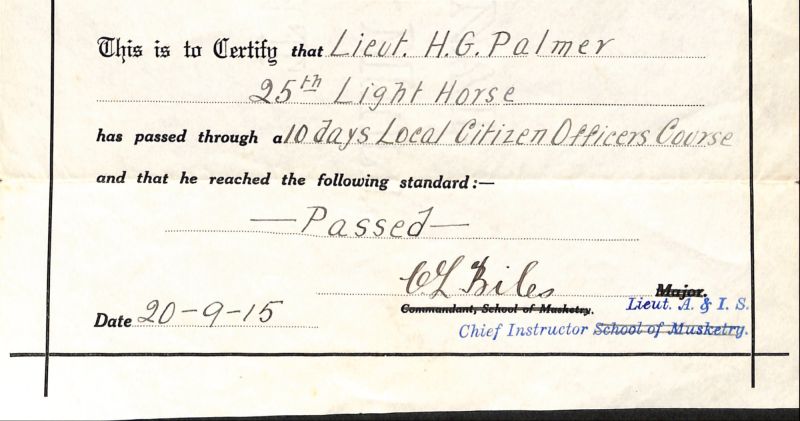 This is to Certify that Lieut. H.G. Palmer
25th Light Horse
has passed through a 10 days Local Citizen Officers Course
and that he reached the following standard:—
— Passed —
Major.
Commandant, School of Musketry.
Lieut. A. & I. S.
Date 20-9-15
Chief Instructor School of Musketry.